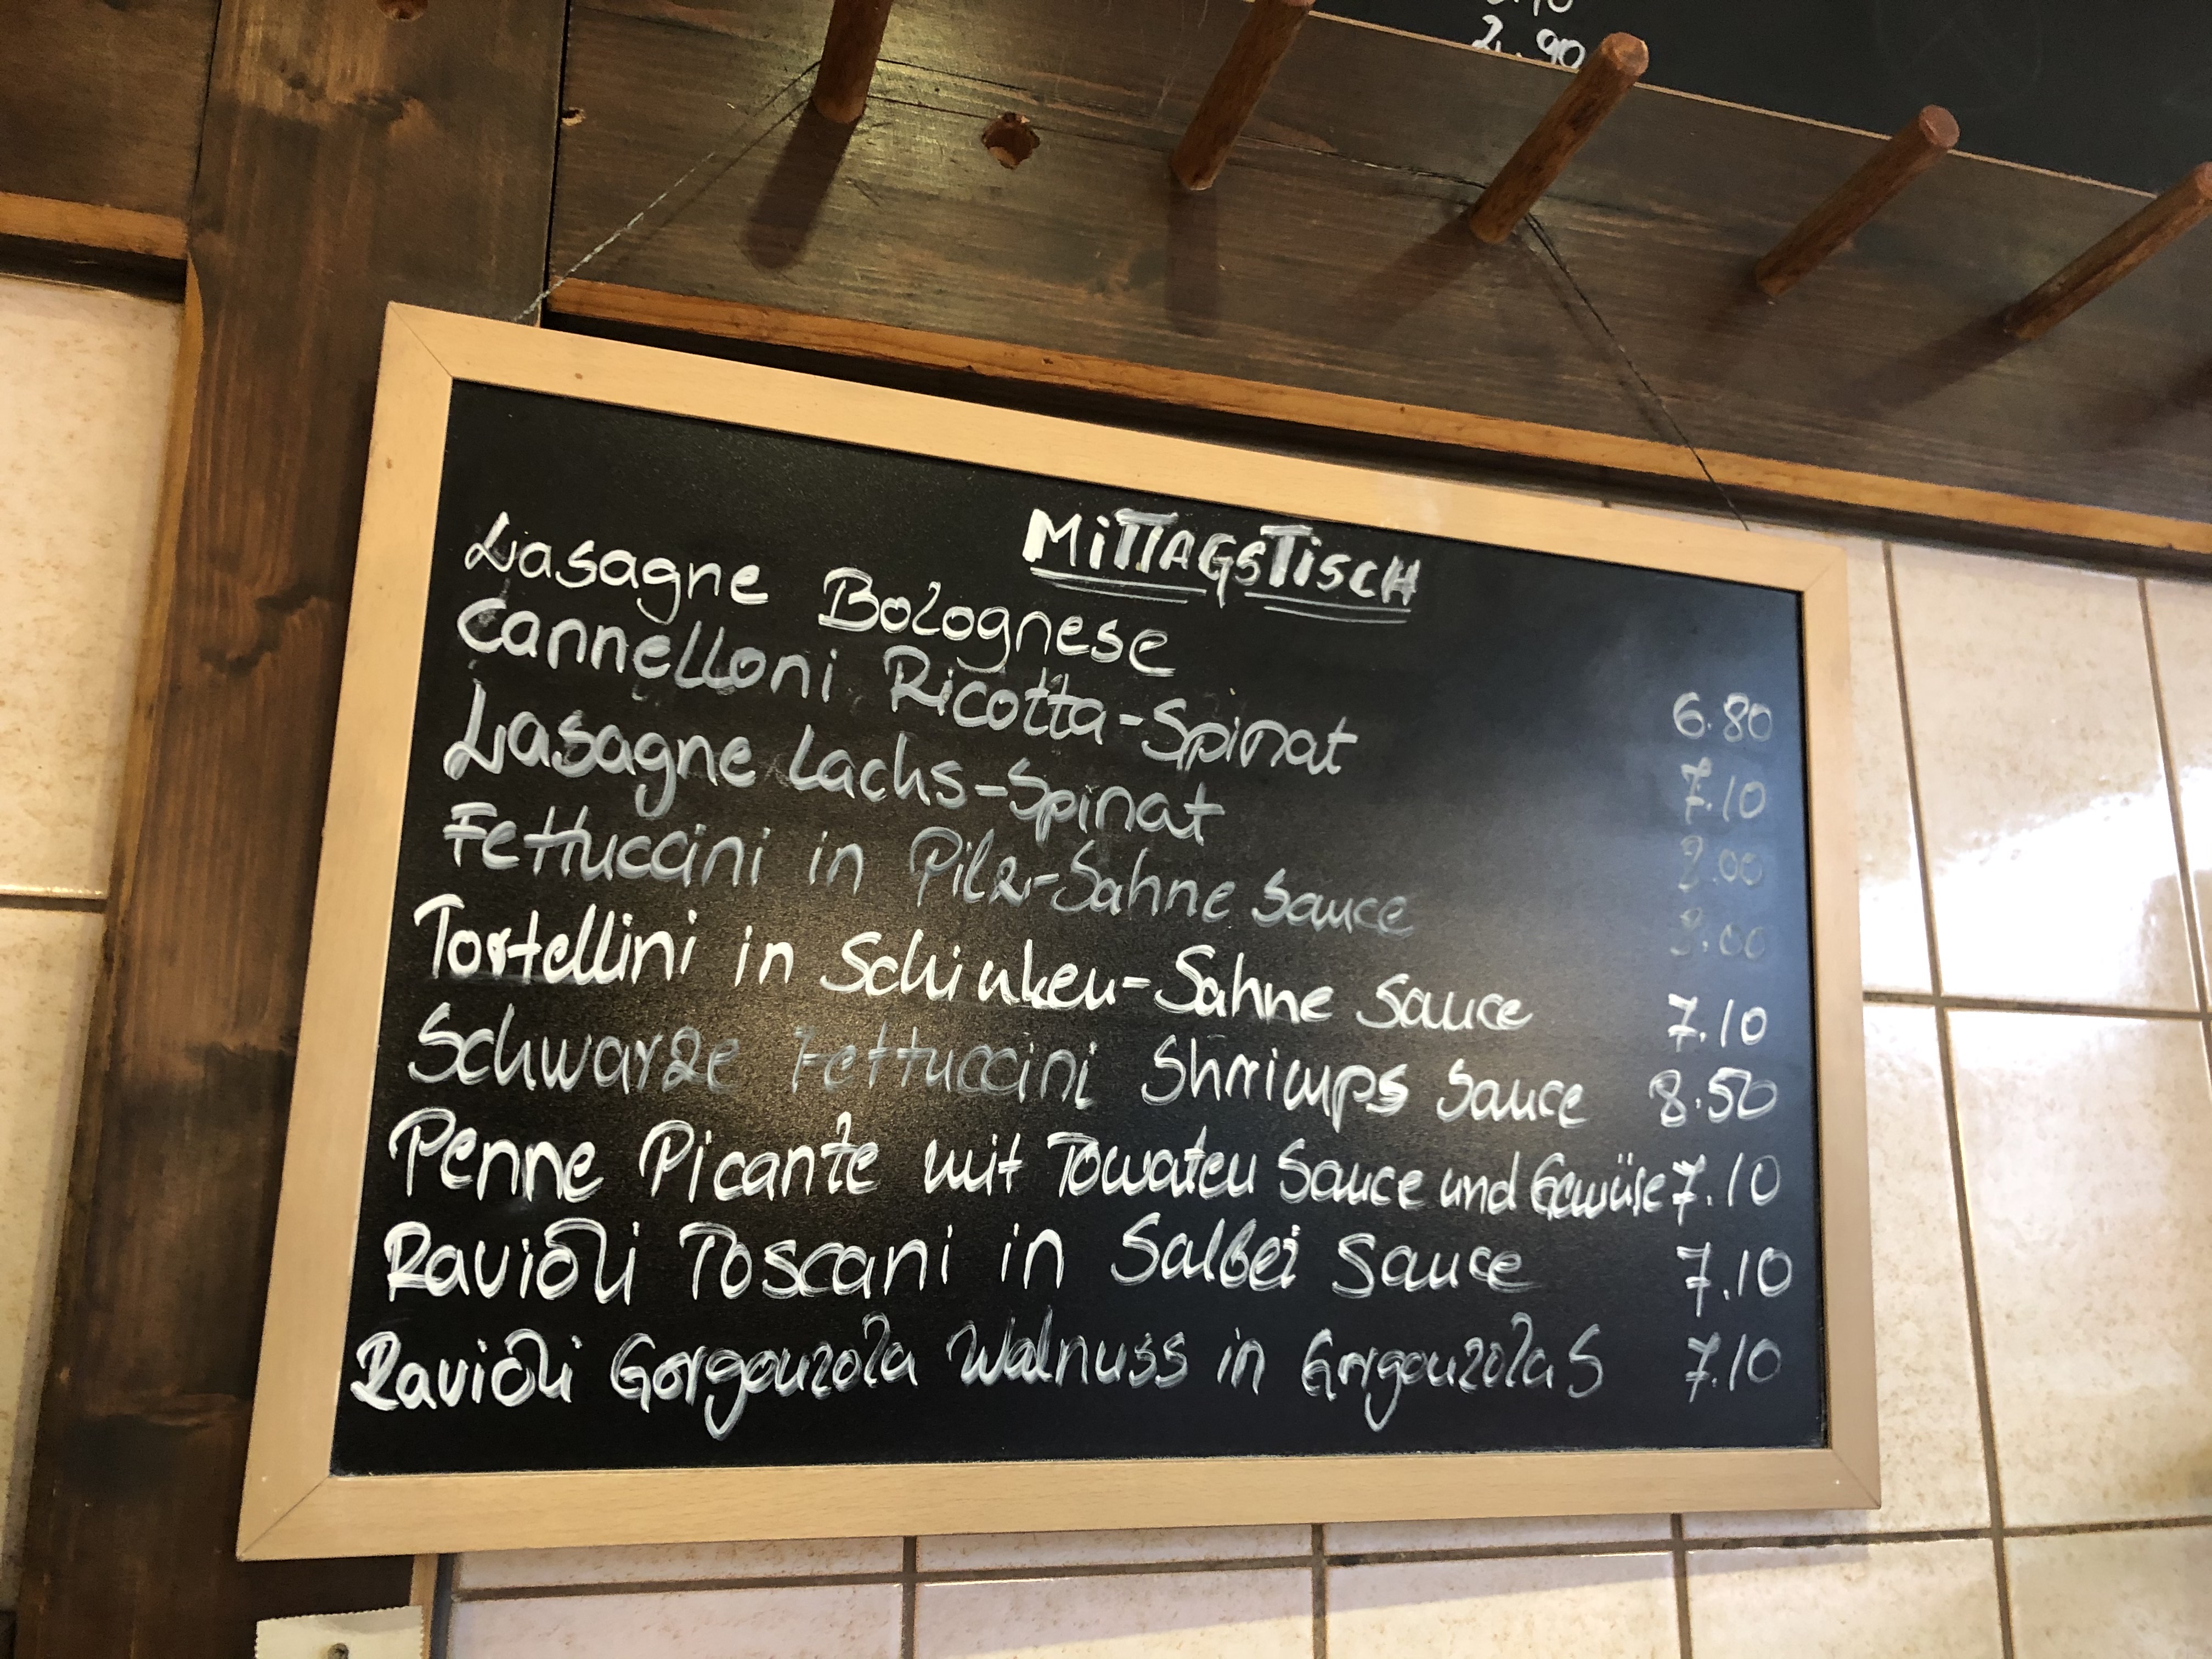 2.90
MiTTAGSTiSCH
Lasagne Bolognese 6.80
Cannelloni Ricotta-Spinat 7.10
Lasagne Lachs-Spinat
Fettuccini in Pilz-Sahne Sauce
Tortellini in Schinken-Sahne Sauce 7.10
Schwarze Fettuccini Shrimps Sauce 8.50
Penne Picante mit Tomaten Sauce und Gemüse 7.10
Ravioli Toscani in Salbei Sauce 7.10
Ravioli Gorgonzola Walnuss in Gorgonzola S 7.10